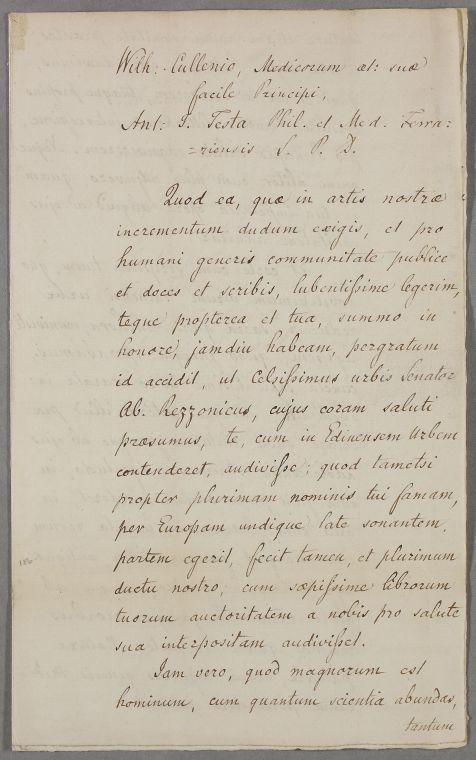 Wilh: Cullenio, Medicorum æt: suæ
facile Principi,
Ant: J. Testa Phil. et Med. Ferra:
=riensis S. P. D.
Quod ea, quæ in artis nostræ
incrementum dudum exigis, et pro
humani generis communitate publice
et doces et scribis, lubentissime legerim,
teque propterea et tua, summo in
honore, jamdiu habeam, pergratum
id accidit, ut Celsissimus urbis Senator
Ab. Rezzonicus, cujus coram saluti
præsumus, te, cum in Edinensem Urbem
contenderet, audivisse: quod tametsi
propter plurimam nominis tui famam,
per Europam undique late sonantem,
partem egerit, fecit tamen, et plurimum
ductu nostro, cum sæpissime librorum
tuorum auctoritatem a nobis pro salute
sua interpositam audivisset.
Jam vero, quod magnorum est
hominum, cum quantum scientia abundas,
tantum